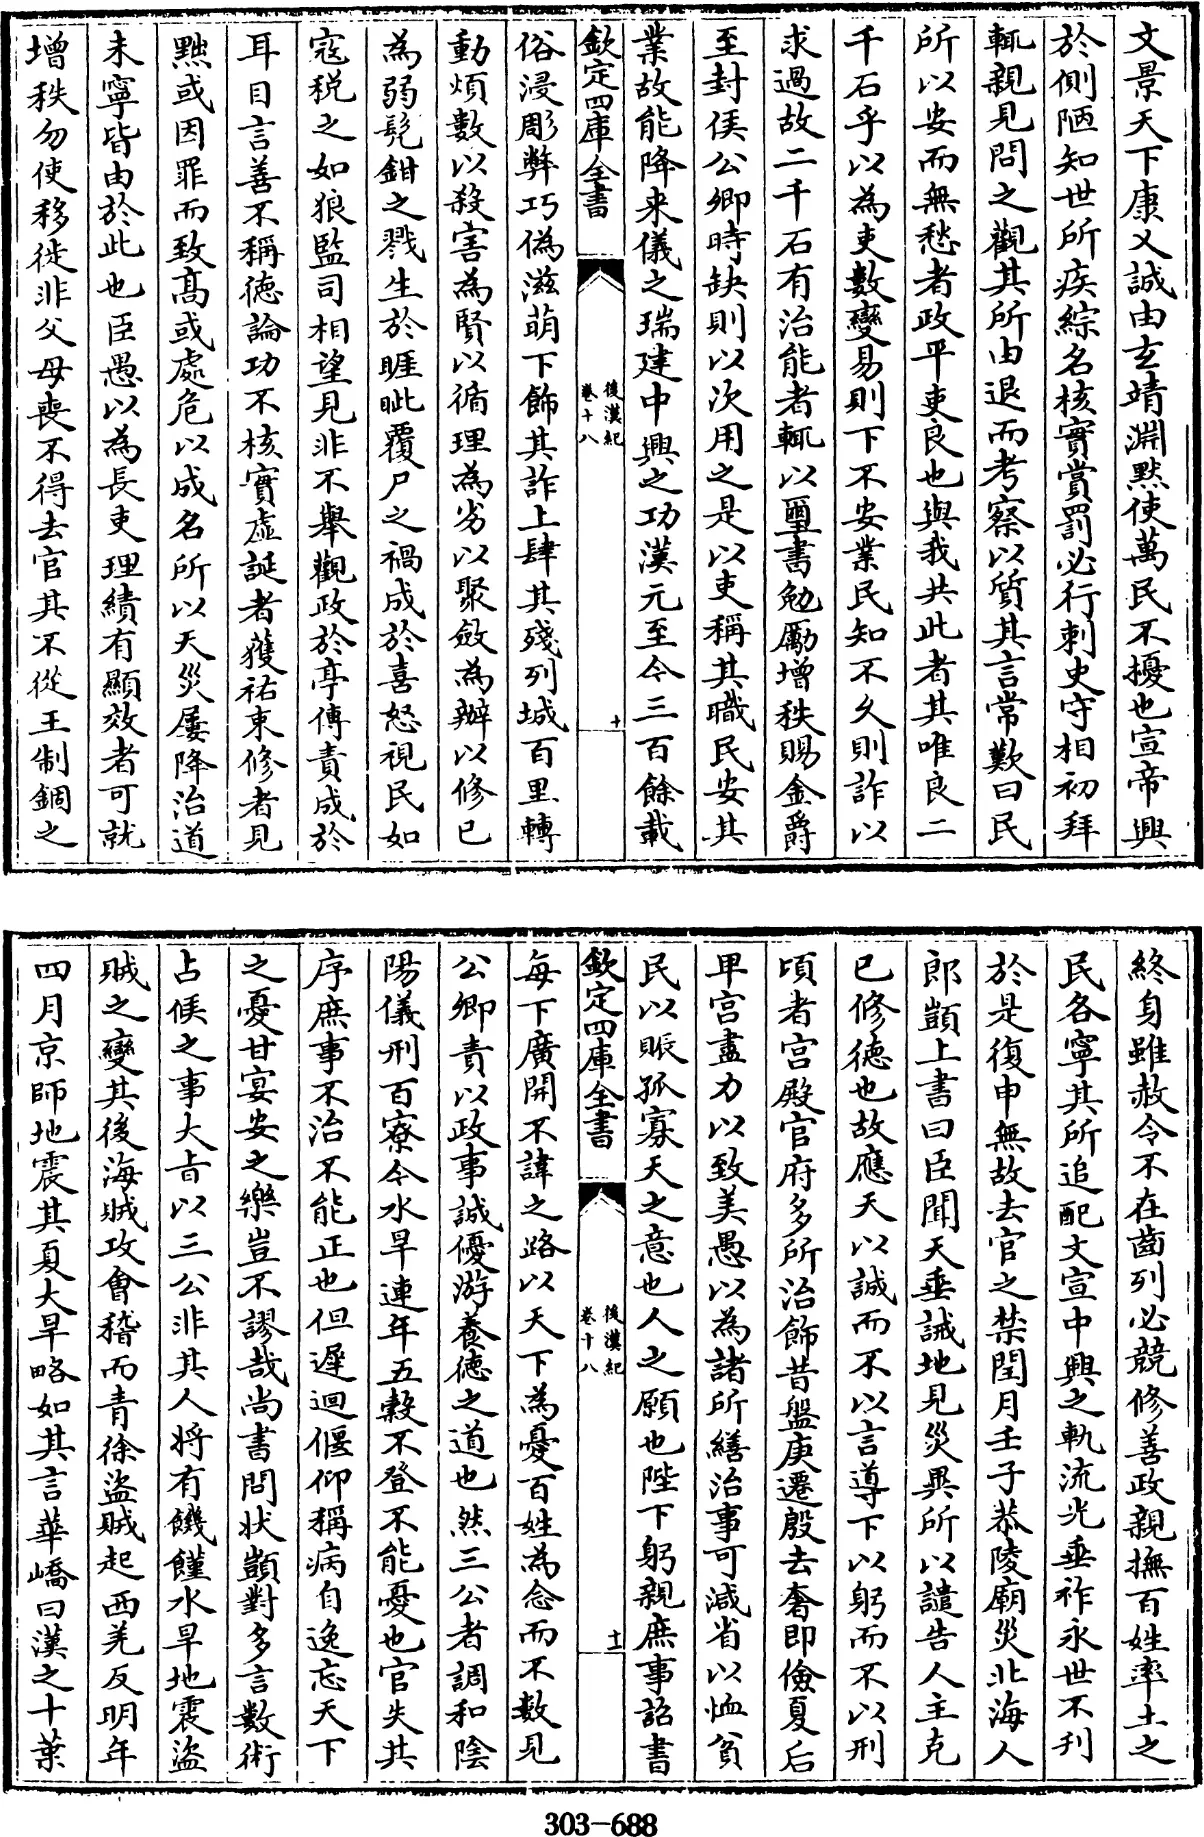 文景天下康乂誠由玄靖淵黙使萬民不擾也宣帝興
於側陋知世所疾綜名核實賞罰必行刺史守相初拜
輒親見問之觀其所由退而考察以質其言常歎曰民
所以安而無愁者政平吏良也與我共此者其唯良二
千石乎以為吏數變易則下不安業民知不久則詐以
求過故二千石有治能者輒以璽書勉厲增秩賜金爵
至封侯公卿時缺則以次用之是以吏稱其職民安其
業故能降來儀之瑞建中興之功漢元至今三百餘載
欽定四庫全書
後漢紀
卷十八
十
俗浸彫弊巧偽滋萌下飾其詐上肆其殘列城百里轉
動煩數以殺害為賢以循理為劣以聚斂為辦以修已
為弱髠鉗之戮生於睚眦覆尸之禍成於喜怒視民如
寇税之如狼監司相望見非不舉觀政於亭傳責成於
耳目言善不稱德論功不核實虚誕者獲祐束修者見
黜或因罪而致髙或處危以成名所以天災屢降治道
未寧皆由於此也臣愚以為長吏理績有顯效者可就
增秩勿使移徙非父母喪不得去官其不從王制錮之
終身雖赦令不在齒列必競修善政親撫百姓率土之
民各寧其所追配文宣中興之軌流光垂祚永世不刋
於是復申無故去官之禁閏月壬子恭陵廟災北海人
郎顗上書曰臣聞天垂誡地見災異所以譴告人主克
已修德也故應天以誠而不以言導下以躬而不以刑
頃者宫殿官府多所治飾昔盤庚遷殷去奢即儉夏后
甲宫盡力以致美愚以為諸所繕治事可減省以恤貧
民以賑孤寡天之意也人之願也陛下躬親庶事詔書
欽定四庫全書
後漢紀
卷十八
十一
每下廣開不諱之路以天下為憂百姓為念而不數見
公卿責以政事誠優游養德之道也然三公者調和陰
陽儀刑百寮今水旱連年五穀不登不能憂也官失其
序庶事不治不能正也但遲迴偃仰稱病自逸忘天下
之憂甘宴安之樂豈不謬哉尚書問状顗對多言數術
占候之事大旨以三公非其人将有饑饉水旱地震盜
賊之變其後海賊攻會稽而青徐盜賊起西羌反明年
四月京師地震其夏大旱略如其言華嶠曰漢之十葉
303-688